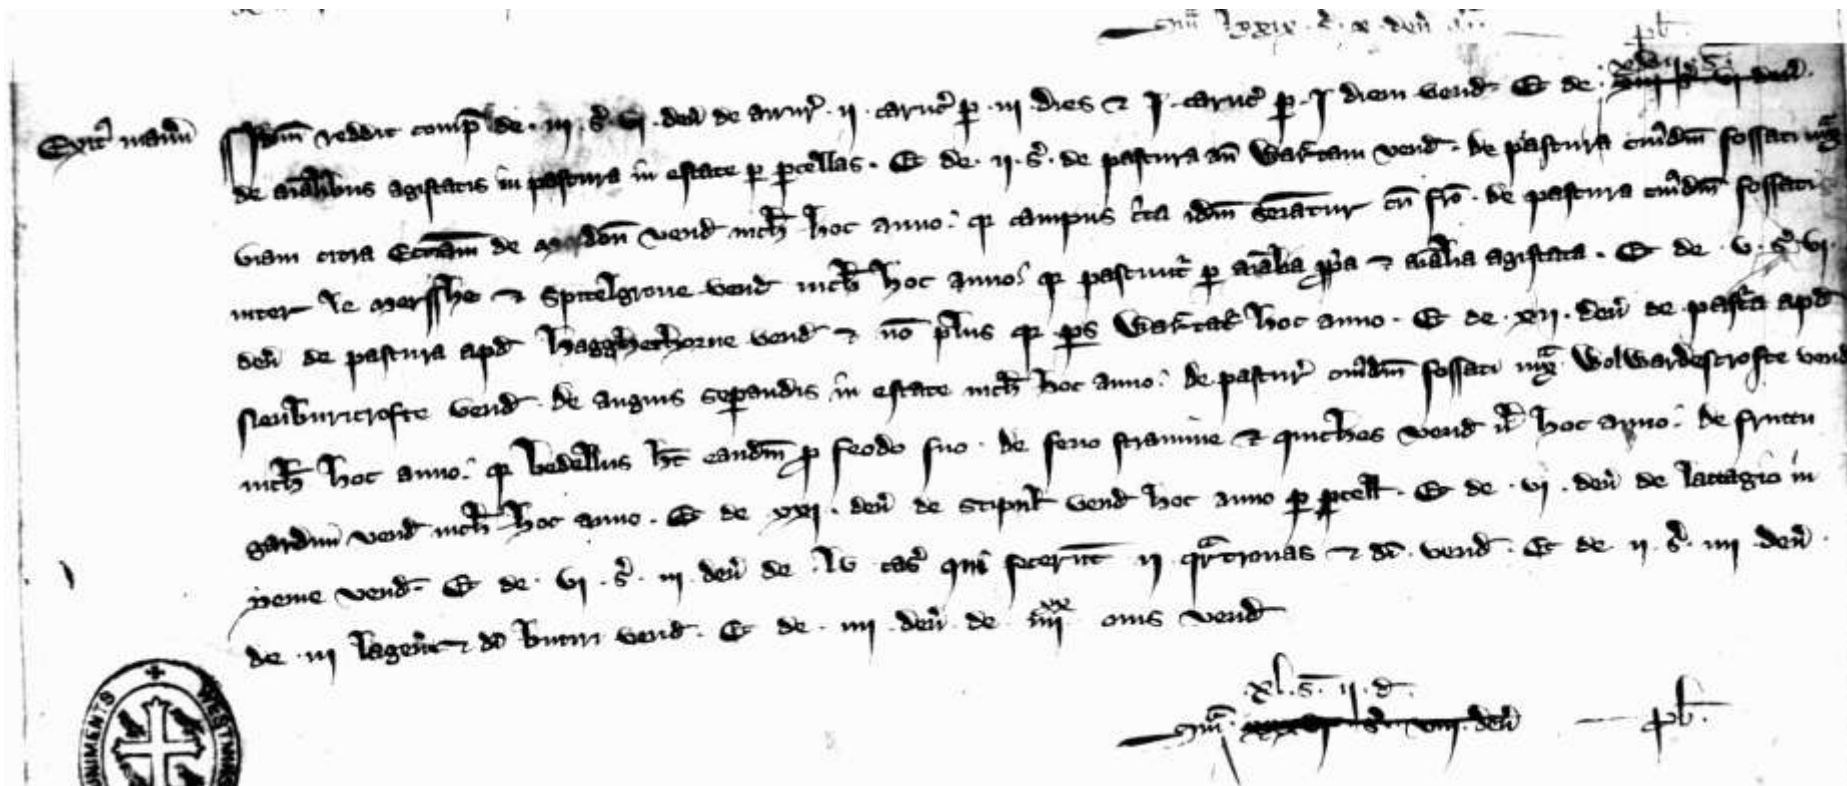 lxxix · s · x · den
pb
xviij s
Exit maner Idem reddit comp de · iii · s · vi · den de arrur · ii · caruc p · iii · dies & I · caruc p · I diem vend · Et de · iiii s vi den
de aialibus agistatis in pastura in estate p pcellas · Et de · ii · s · de pastura an Warectam vend · de pastura cuiusdm fossati iuxa
viam citra de vend nich hoc anno · qr campus circa idm seiatur cu fro · de pastura cuiusdm fossati
inter le Mersshe & Spitelgrove vend nich hoc anno · qr pastuit p aialia ppa & aialia agistata · Et de · v · s · vi ·
den de pastura apd hagghethorne vend & no plus qr ps Warectat hoc anno · Et de · xii · den de pastura apd
vend · de augnis sepandis in estate nich hoc anno · de pastur cuiusdm fossati iuxa Wolwardescrofte vend
nich hoc anno · qr bedellus ht eandm p feodo suo · de feno stramine & quiches vend n hoc anno · de fructu
gardini vend nich hoc anno · Et de xxi · den de stipul vend hoc anno p pcell · Et de · vi · den de lactagio in
yeme vend · Et de · vi · s · iii · den de · lv cas qui fecerunt ii qrtronas & di · vend · Et de · ii · s · iiii · den ·
de · iii lagen & di butiri vend · Et de · iiii · den de · iiii xx ouis vend
· xl · s · ii · d ·
Sm · s · viii · den pb ·
MONUMENTS WESTMINS